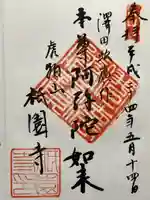 奉拝 平成二十四年五月十四日
澤田政廣作
本尊阿弥陀如来
虎狛山
祇園寺